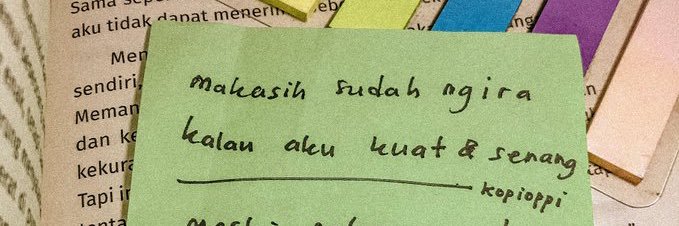 Sama sepe
aku tidak dapat menerim
Men
sendiri,
Meman
dan ke
kekura
Tapi ir
makasih sudah ngira
kalau aku kuat & senang
kopioppi